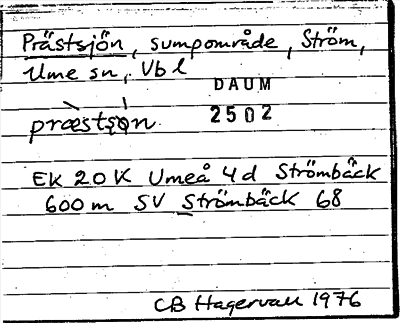 Prästsjön, sumpområde, Ström,
Ume sn, Vbl
DAUM
2502
præstso̩n
EK 20K Umeå 4d Strömbäck
600m SV Strömbäck 68
CB Hagervall 1976